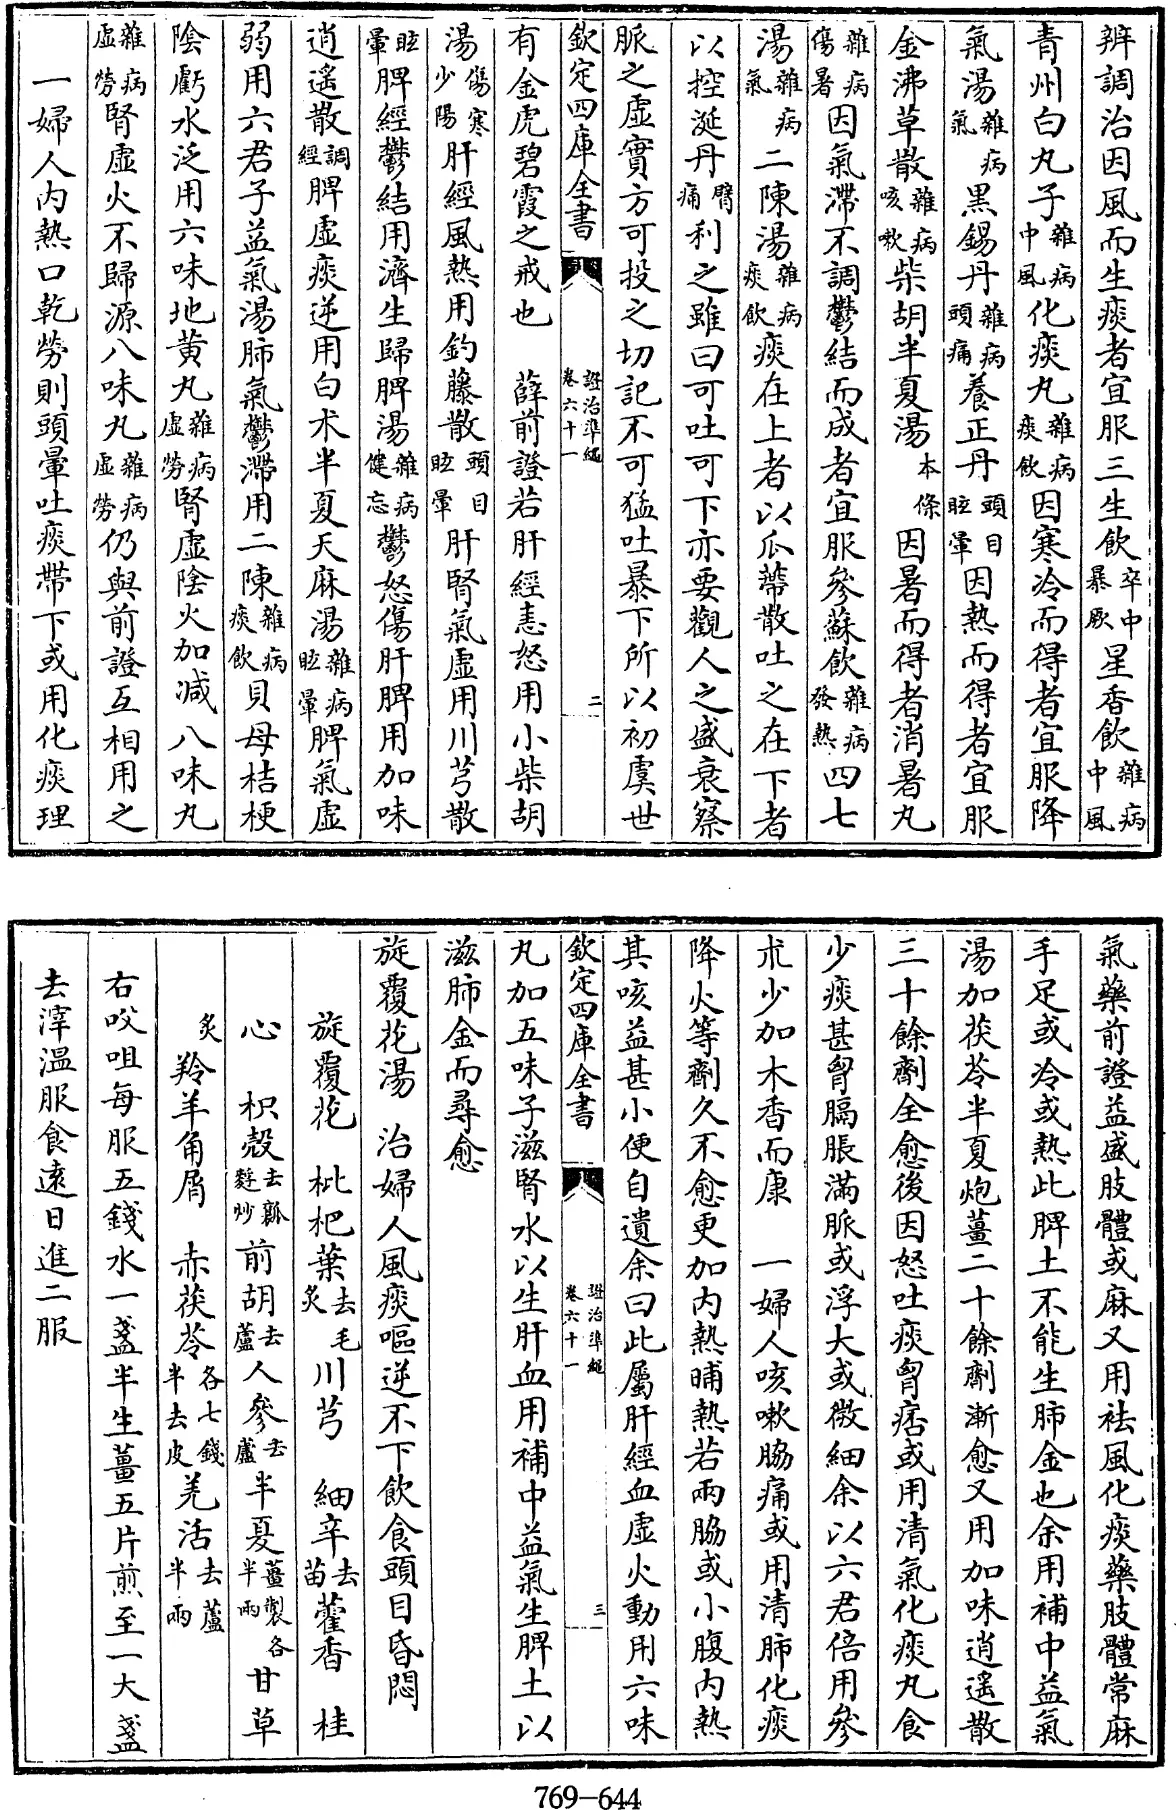 辨調治因風而生痰者宜服三生飲卒中暴厥星香飲雜病中風
青州白丸子雜病中風化痰丸雜病痰飲因寒冷而得者宜服降
氣湯雜病氣黑錫丹雜病頭痛養正丹頭目眩暈因熱而得者宜服
金沸草散雜病咳嗽柴胡半夏湯本條因暑而得者消暑丸
雜病傷暑因氣滯不調鬱結而成者宜服參蘇飲雜病發熱四七
湯雜病氣二陳湯雜病痰飲痰在上者以瓜蒂散吐之在下者
以控涎丹臂痛利之雖曰可吐可下亦要觀人之盛衰察
脈之虛實方可投之切記不可猛吐暴下所以初虞世
欽定四庫全書 證治準繩卷六十一 二
有金虎碧霞之戒也 薛前證若肝經恚怒用小柴胡
湯傷寒少陽肝經風熱用鈎藤散頭目眩暈肝腎氣虛用川芎散
眩暈脾經鬱結用濟生歸脾湯雜病健忘鬱怒傷肝脾用加味
逍遙散調經脾虛痰逆用白朮半夏天麻湯雜病眩暈脾氣虛
弱用六君子益氣湯肺氣鬱滯用二陳雜病痰飲貝母桔梗
陰虧水泛用六味地黃丸雜病虛勞腎虛陰火加減八味丸
雜病虛勞腎虛火不歸源八味丸雜病虛勞仍與前證互相用之
一婦人內熱口乾勞則頭暈吐痰帶下或用化痰理
氣藥前證益盛肢體或麻又用祛風化痰藥肢體常麻
手足或冷或熱此脾土不能生肺金也余用補中益氣
湯加茯苓半夏炮薑二十餘劑漸愈又用加味逍遙散
三十餘劑全愈後因怒吐痰胷痞或用清氣化痰丸食
少痰甚胷膈脹滿脈或浮大或微細余以六君倍用參
朮少加木香而康 一婦人咳嗽脇痛或用清肺化痰
降火等劑久不愈更加內熱晡熱若兩脇或小腹內熱
其咳益甚小便自遺余曰此屬肝經血虛火動用六味
欽定四庫全書 證治準繩卷六十一 三
丸加五味子滋腎水以生肝血用補中益氣生脾土以
滋肺金而尋愈
旋覆花湯 治婦人風痰嘔逆不下飲食頭目昏悶
旋覆花 枇杷葉去毛炙 川芎 細辛去苗 藿香 桂
心 枳殼去瓤麩炒 前胡去蘆 人參去蘆 半夏薑製各半兩 甘草
炙 羚羊角屑 赤茯苓各七錢半去皮 羌活去蘆半兩
右㕮咀每服五錢水一盞半生薑五片煎至一大盞
去滓溫服食遠日進二服
769-644